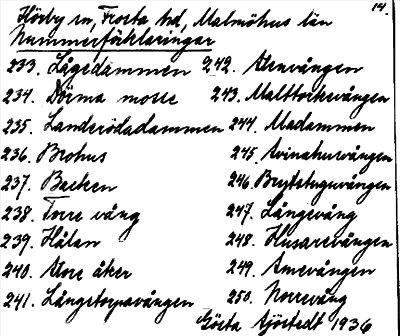 14.
Hörby sn, Frosta hd, Malmöhus län
Nummerförklaringar
233. Lågedammen
234. Dörma mosse
235. Landsrödadammen
236. Brohus
237. Backen
238. Torre vång
239. Hålan
240. Store åker
241. Långstorpavången
242. Stenvången
243. Malttorkevången
244. Madammen
245. Svinahusvången
246. Brydstuguvången
247. Långevång
248. Husarevången
249. Smevången
250. Norrevång
Gösta Sjöstedt 1936